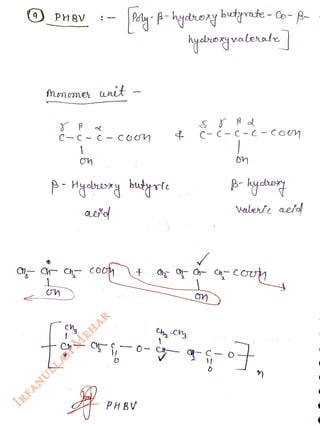 9 PHBV :- [Poly-β-hydroxy butyrate-Co-β-
hydroxyvalerate]
monomer unit -
γ β α
C-C-C-COOH & C-C-C-C-COOH
δ γ β α
OH OH
β-Hydroxy butyric β-hydroxy
acid valeric acid
CH3-CH-CH2-COOH + CH3-CH2-CH-CH2-COOH
* ✓
OH OH
CH3 CH2-CH3
[-CH-CH2-C-O-CH-CH2-C-O-]n
* O ✓ O
PHBV
IRFANULLAH MEHAR